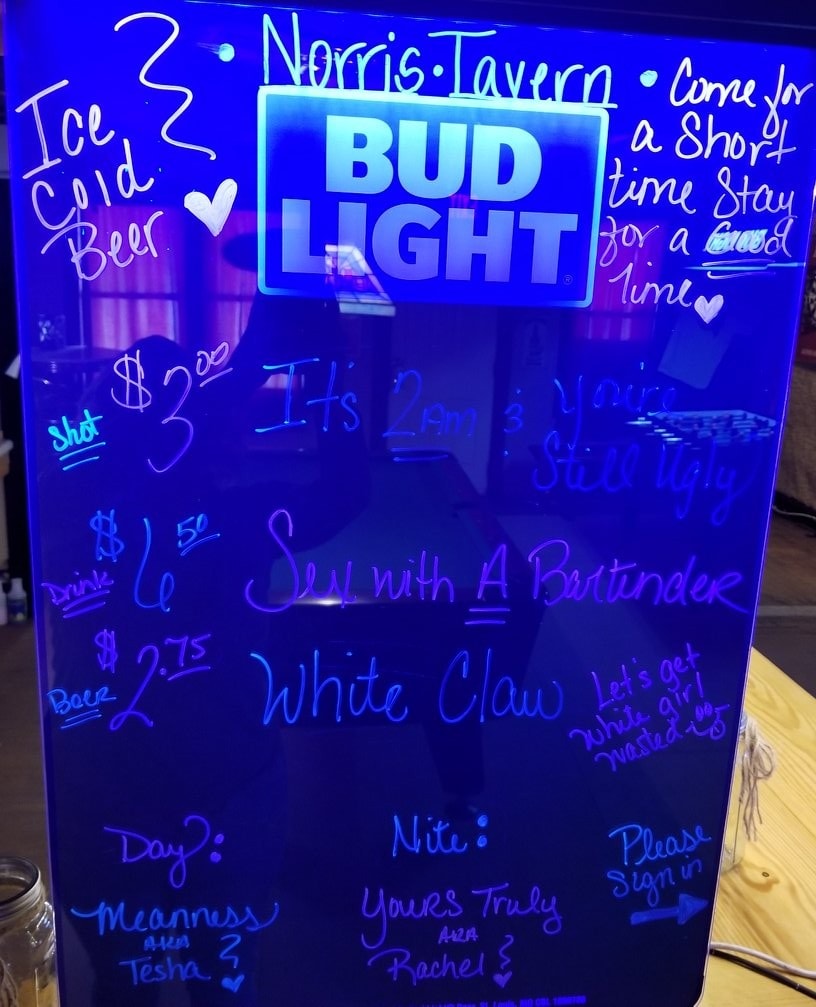 • Norris • Tavern •
Ice
Cold
Beer
BUD
LIGHT®
Come for
a Short
time Stay
for a Good
Time
$3.00
Shot
It's 2AM & You're
Still Ugly
$6.50
Drink
Sex with A Bartender
$2.75
Beer
White Claw
Let's get
white girl
wasted
Day:
Meanness
AKA
Tesha
Nite:
Yours Truly
AKA
Rachel
Please
Sign in